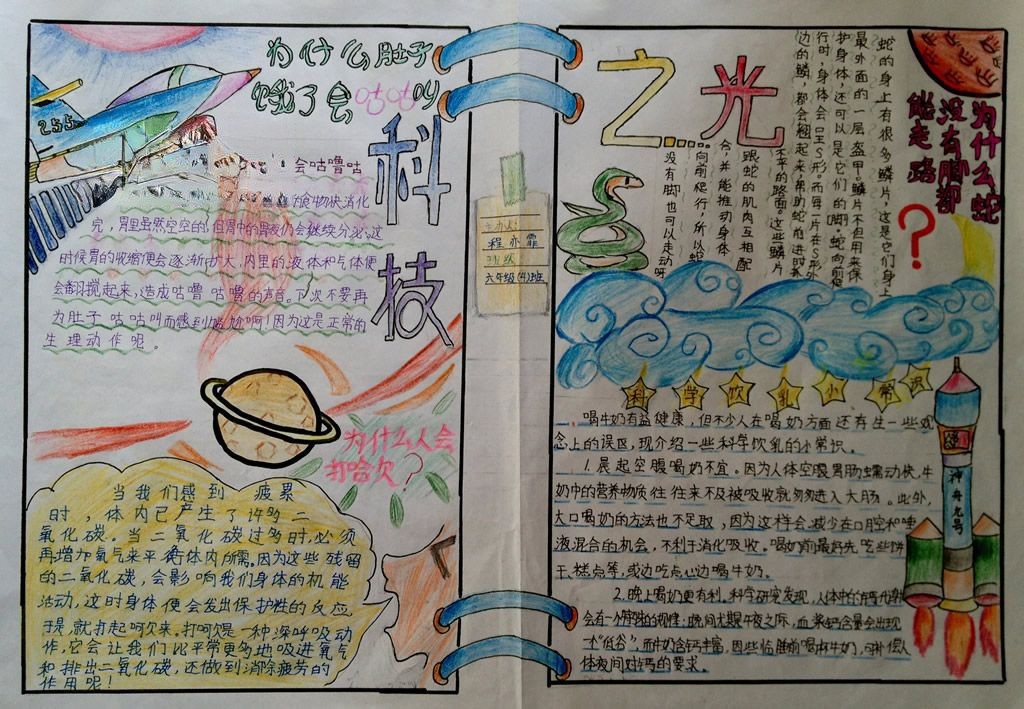 为什么肚子
饿了会咕咕叫
科技
255
会咕噜咕
食物快消化
完，胃里虽然空空的，但胃中的胃液仍会继续分泌。这
时候胃的收缩便会逐渐扩大，内里的液体和气体便
会翻搅起来，造成咕噜咕噜的声音。下次不要再
为肚子咕咕叫而感到尴尬啊！因为这是正常的
生理动作呢。
为什么人会
打哈欠？
当我们感到疲累
时，体内已产生了许多二
氧化碳。当二氧化碳过多时，必须
再增加氧气来平衡体内所需。因为这些残留
的二氧化碳，会影响我们身体的机能
活动，这时身体便会发出保护性的反应，
于是，就打起呵欠来。打呵欠是一种深呼吸动
作，它会让我们比平常更多地吸进氧气
和排出二氧化碳，还做到消除疲劳的
作用呢！
主办人：
程亦霏
班级
六年级(4)班
之光
为什么蛇
没有脚都
能走路
？
蛇的身上有很多鳞片，这是它们身上
最外面的一层盔甲。鳞片不但用来保
护身体，还可以是它们的脚。蛇向前爬
行时，身体会呈S形。而每一片在S形外
边的鳞，都会翘起来，帮助蛇前进时抓
不平的路面。这些鳞片
跟蛇的肌肉互相配
合，并能推动身体
向前爬行，所以蛇
没有脚也可以走动呀
科学饮乳小常识
喝牛奶有益健康，但不少人在喝奶方面还存在一些观
念上的误区，现介绍一些科学饮乳的小常识。
1.晨起空腹喝奶不宜。因为人体空腹胃肠蠕动快，牛
奶中的营养物质往往来不及被吸收就匆匆进入大肠。此外，
大口喝奶的方法也不足取，因为这样会减少在口腔和唾
液混合的机会，不利于消化吸收。喝奶前最好先吃些饼
干、糕点等，或边吃点心边喝牛奶。
2.晚上喝奶更有利。科学研究发现，人体中的钙代谢
会有一个昼夜的规律，晚间尤是午夜之际，血浆钙含量会出现
个“低谷”，而牛奶含钙丰富，因些临睡前喝杯牛奶，可补偿人
体夜间对钙的要求。
神舟九号